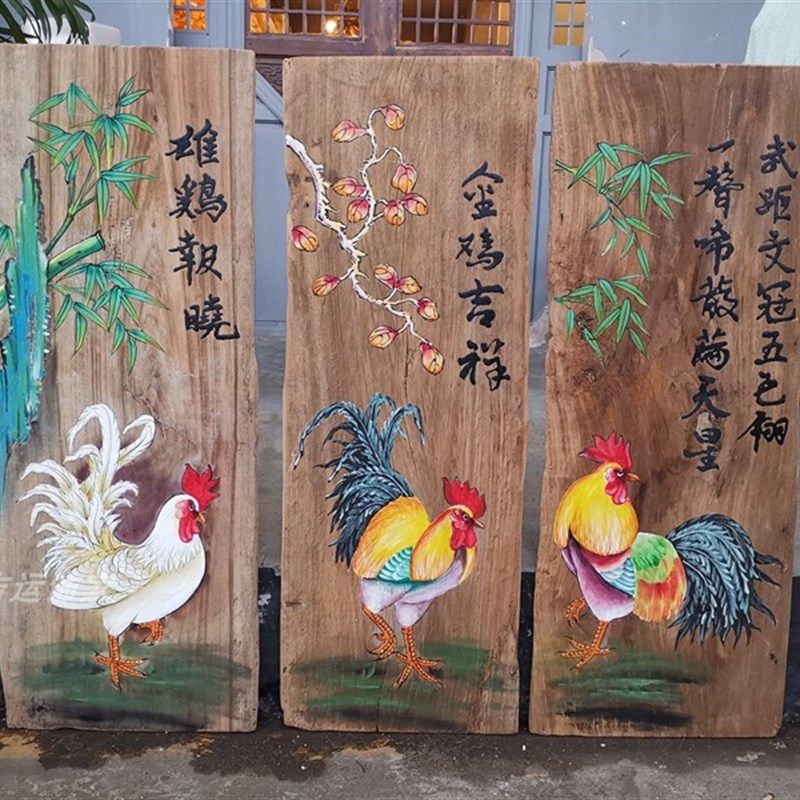 雄鷄報曉
金鸡吉祥
武距文冠五色翎
一聲啼散滿天星